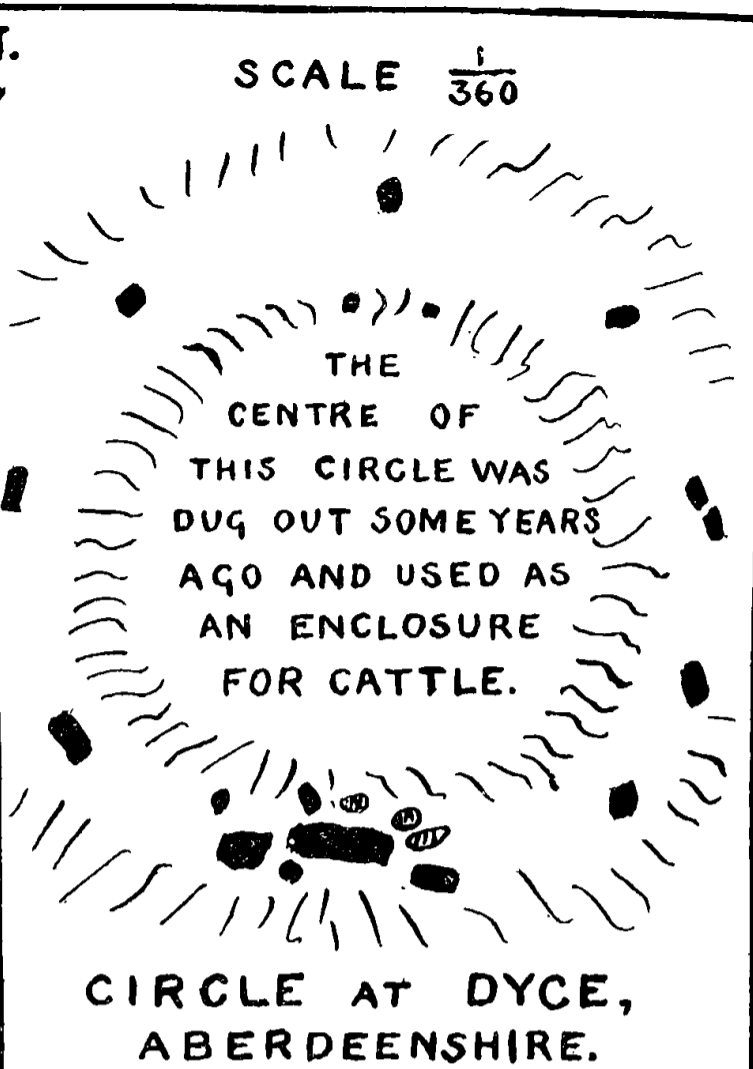 SCALE 1/360
THE
CENTRE OF
THIS CIRCLE WAS
DUG OUT SOME YEARS
AGO AND USED AS
AN ENCLOSURE
FOR CATTLE.
CIRCLE AT DYCE,
ABERDEENSHIRE.